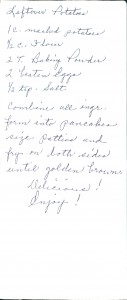 Leftover Potatoes
1 c. mashed potatoes
½ c. Flour
2 T. Baking Powder
2 beaten Eggs
½ tsp. Salt
Combine all ingr.
form into pancakes
size patties and
fry on both sides
until golden brown
Delicious!
Enjoy!